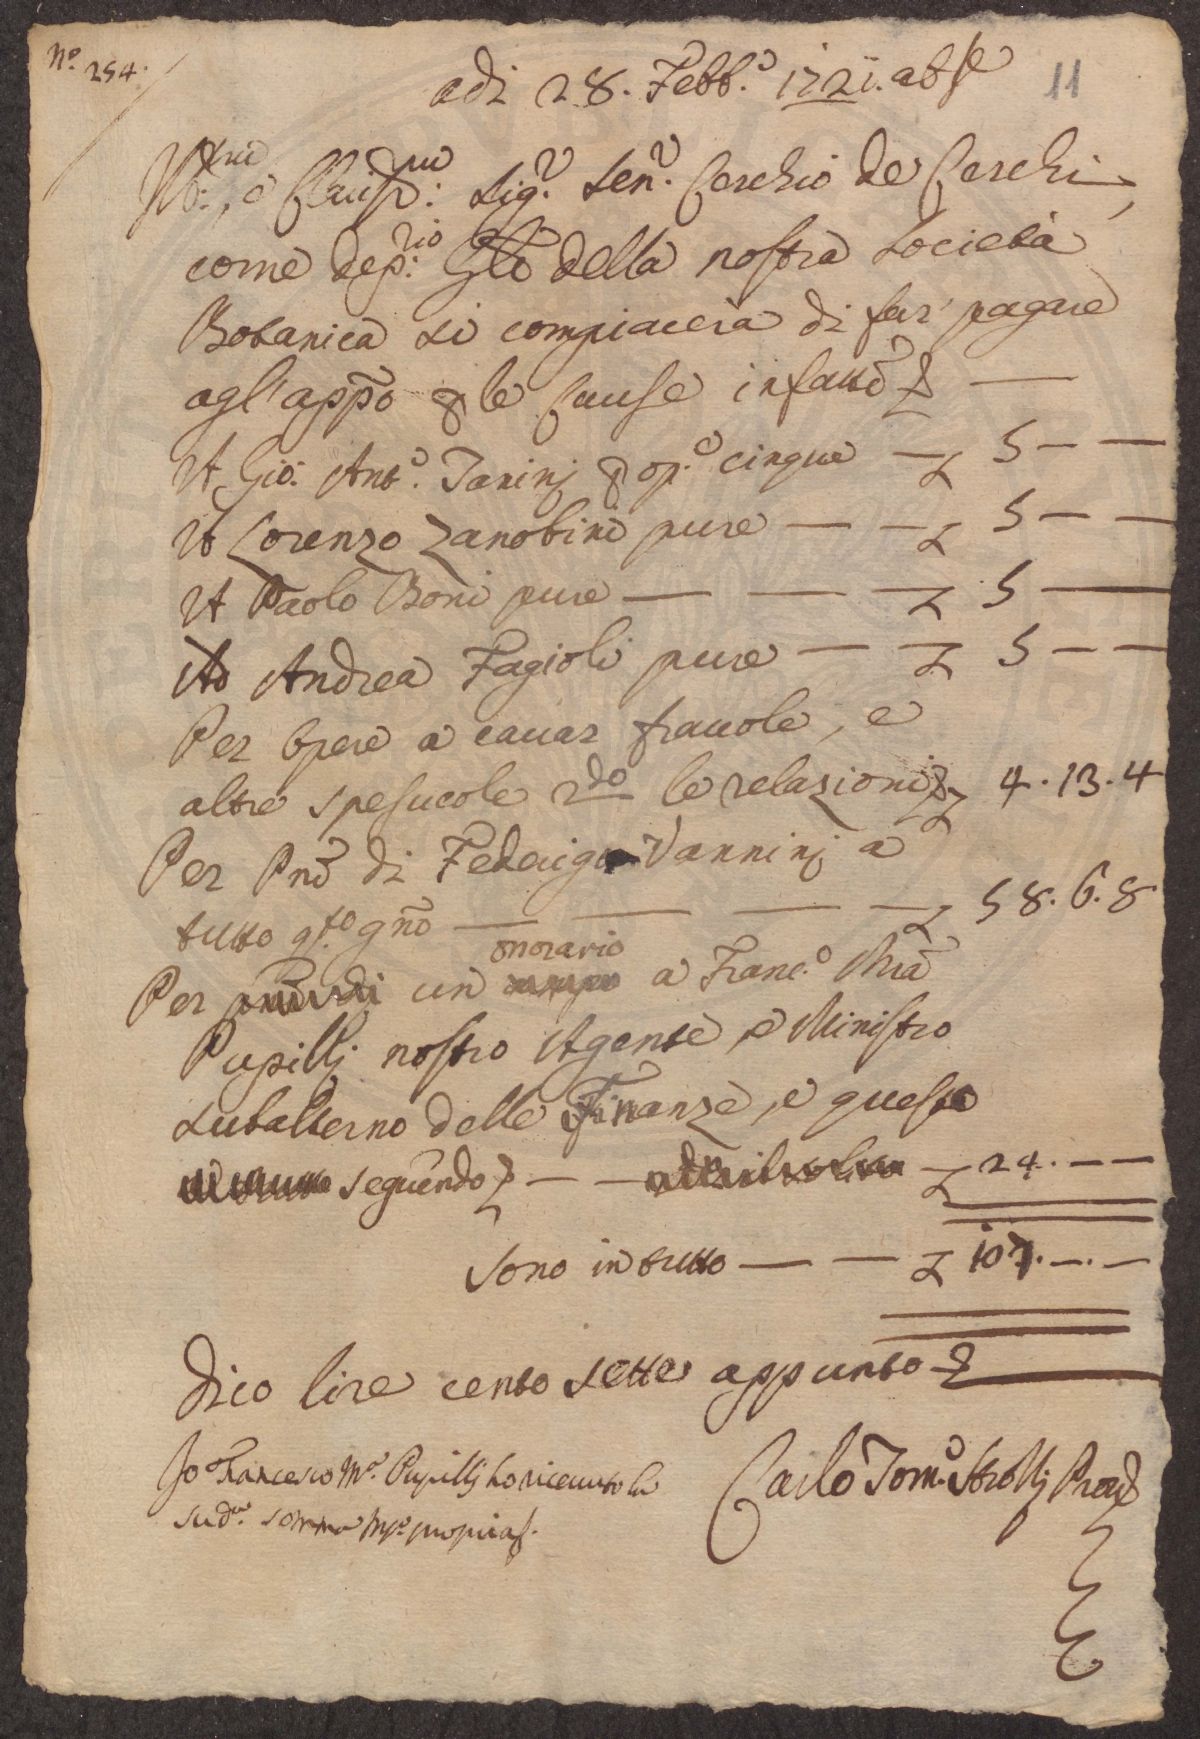 N.º 254.
adi 28. Febb.º 1721. ab Jnc
11
Ill.mo, e Clariss.mo Sig.r Sen.r Cerchio de Cerchi,
come dep.rio Gñle della nostra Società
Botanica si compiacerà di far' pagare
agl'appõ p le Cause infattẽ
A Gio: Ant.º Taninj p op.e cinque — £ 5 — —
A Lorenzo Zanobini pure — — £ 5 — —
A Paolo Boni pure — — — £ 5 —
A Andrea Fagioli pure — — £ 5 — —
Per Opere a cavar fravole, e
altre spesucole 2.do le relazioni £ 4.13.4
Per Pnẽ di Federigo Vanninj a
tutto q.to gnõ — — — — £ 58.6.8
onorario
Per un a Franc.º Mrã
Pupillj nostro Agente, e Ministro
subalterno delle Finanze, e questo
seguendo — — £ 24. — —
Sono in tutto — — £ 107. — . —
Dico lire cento sette appunto
Jo Francesco M.ª Pupillj ho ricevuto la
sud.ª somma mp.º propria
Carlo Tom.º Strozzj Provd